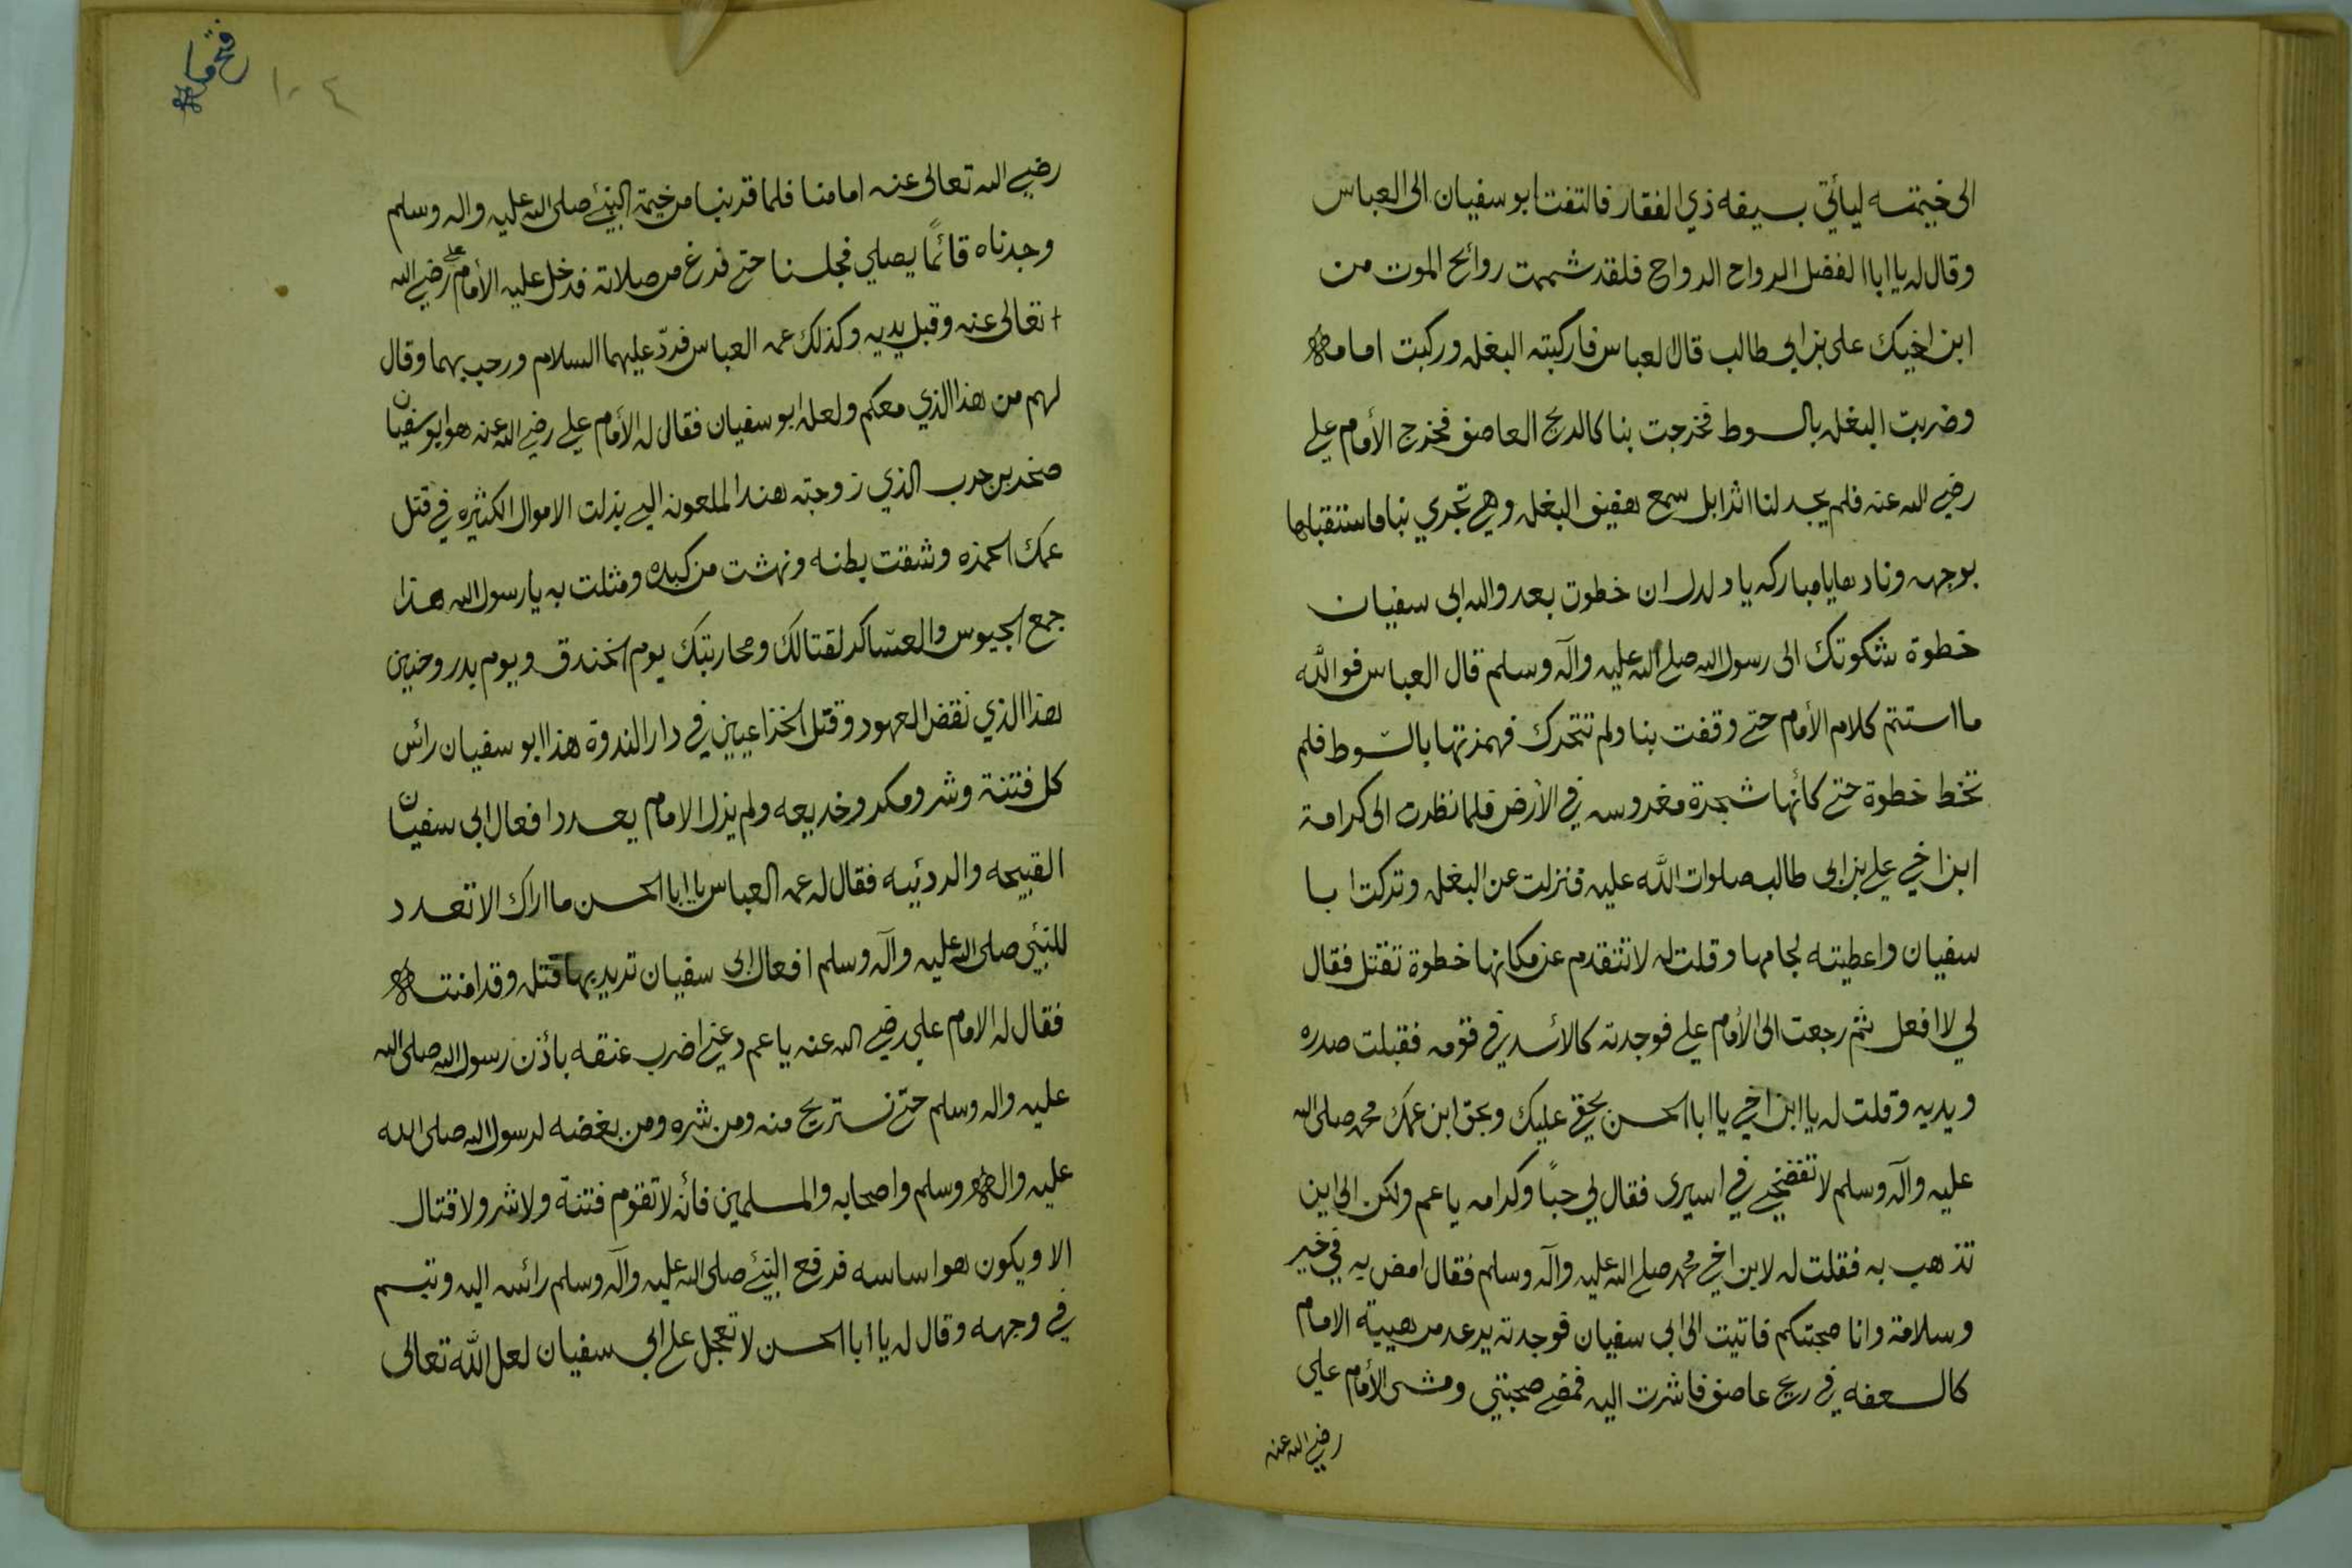 الى خيمته ليأتي بسيفه ذي الفقار فالتفت ابو سفيان الى العباس
وقال له يا ابا الفضل الرواح الرواح فلقد شممت روائح الموت من
ابن اخيك على بن ابي طالب قال العباس فاركبته البغله وركبت امامه
وضربت البغله بالسوط فخرجت بنا كالريح العاصف فخرج الأمام علي
رضي الله عنه فلم يجد لنا اثرا بل سمع هفيف البغله وهي تجري بنا فاستقبلها
بوجهه ونادها يا مباركه يا دلدل ان خطوت بعدو الله ابى سفيان
خطوة شكوتك الى رسول الله صلى الله عليه وآله وسلم قال العباس فوالله
ما استتم كلام الأمام حتى وقفت بنا ولم تتحرك فهمزتها بالسوط فلم
تخط خطوة حتى كأنها شجرة مغروسه في الأرض فلما نظرت الى كرامة
ابن اخي علي بن ابى طالب صلوات الله عليه فنزلت عن البغله وتركت ابا
سفيان واعطيته لجامها وقلت له لا تتقدم عن مكانها خطوة تقتل فقال
لي لا افعل ثم رجعت الى الأمام علي فوجدته كالأسد في قومه فقبلت صدره
ويديه وقلت له يا ابن اخي يا ابا الحسن بحقي عليك وبحق ابن عمك محمد صلى الله
عليه وآله وسلم لا تفضحني في اسيرى فقال لي حبًا وكرامه يا عم ولكن الى اين
تذهب به فقلت له لابن اخي محمد صلى الله عليه وآله وسلم فقال امض به في خير
وسلامة وانا صحبتكم فاتيت الى ابى سفيان فوجدته يرعد من هيبة الامام
كالسعفه في ريح عاصف فاشرت اليه فمضى صحبتي ومشى الأمام علي
رضي الله عنه
فتح مكه
١٠٤
رضي الله تعالى عنه امامنا فلما قربنا من خيمة النبي صلى الله عليه واله وسلم
وجدناه قائمًا يصلي فجلسنا حتى فرغ من صلاته فدخل عليه الأمام علي رضي الله
تعالى عنه وقبل يديه وكذلك عمه العباس فردّ عليهما السلام ورحب بهما وقال
لهم من هذا الذي معكم ولعله ابو سفيان فقال له الأمام علي رضي الله عنه هو ابو سفيان
صخر بن حرب الذي زوجته هند الملعونه التي بذلت الاموال الكثيره في قتل
عمك الحمزه وشقت بطنه ونهشت من كبده ومثلت به يا رسول الله هذا
جمع الجيوس والعسّاكر لقتالك ومحاربتك يوم الخندق ويوم بدر وحنين
هذا الذي نقض العهود وقتل الخزاعيين في دار الندوة هذا ابو سفيان رائس
كل فتنة وشر ومكر وخديعه ولم يزل الامام يعدد افعال ابى سفيان
القبيحه والردئيه فقال له عمه العباس يا ابا الحسن ما اراك الا تعدد
للنبي صلى الله عليه وآله وسلم افعال ابى سفيان تريد بها قتله وقد امنته
فقال له الامام علي رضي الله عنه يا عم دعني اضرب عنقه بأذن رسول الله صلى الله
عليه واله وسلم حتى نستريح منه ومن شره ومن بغضه لرسول الله صلى الله
عليه واله وسلم واصحابه والمسلمين فأنه لا تقوم فتنة ولا شر ولا قتال
الا ويكون هو اساسه فرفع النبي صلى الله عليه وآله وسلم رائسه اليه وتبسم
في وجهه وقال له يا ابا الحسن لا تعجل على ابى سفيان لعل الله تعالى